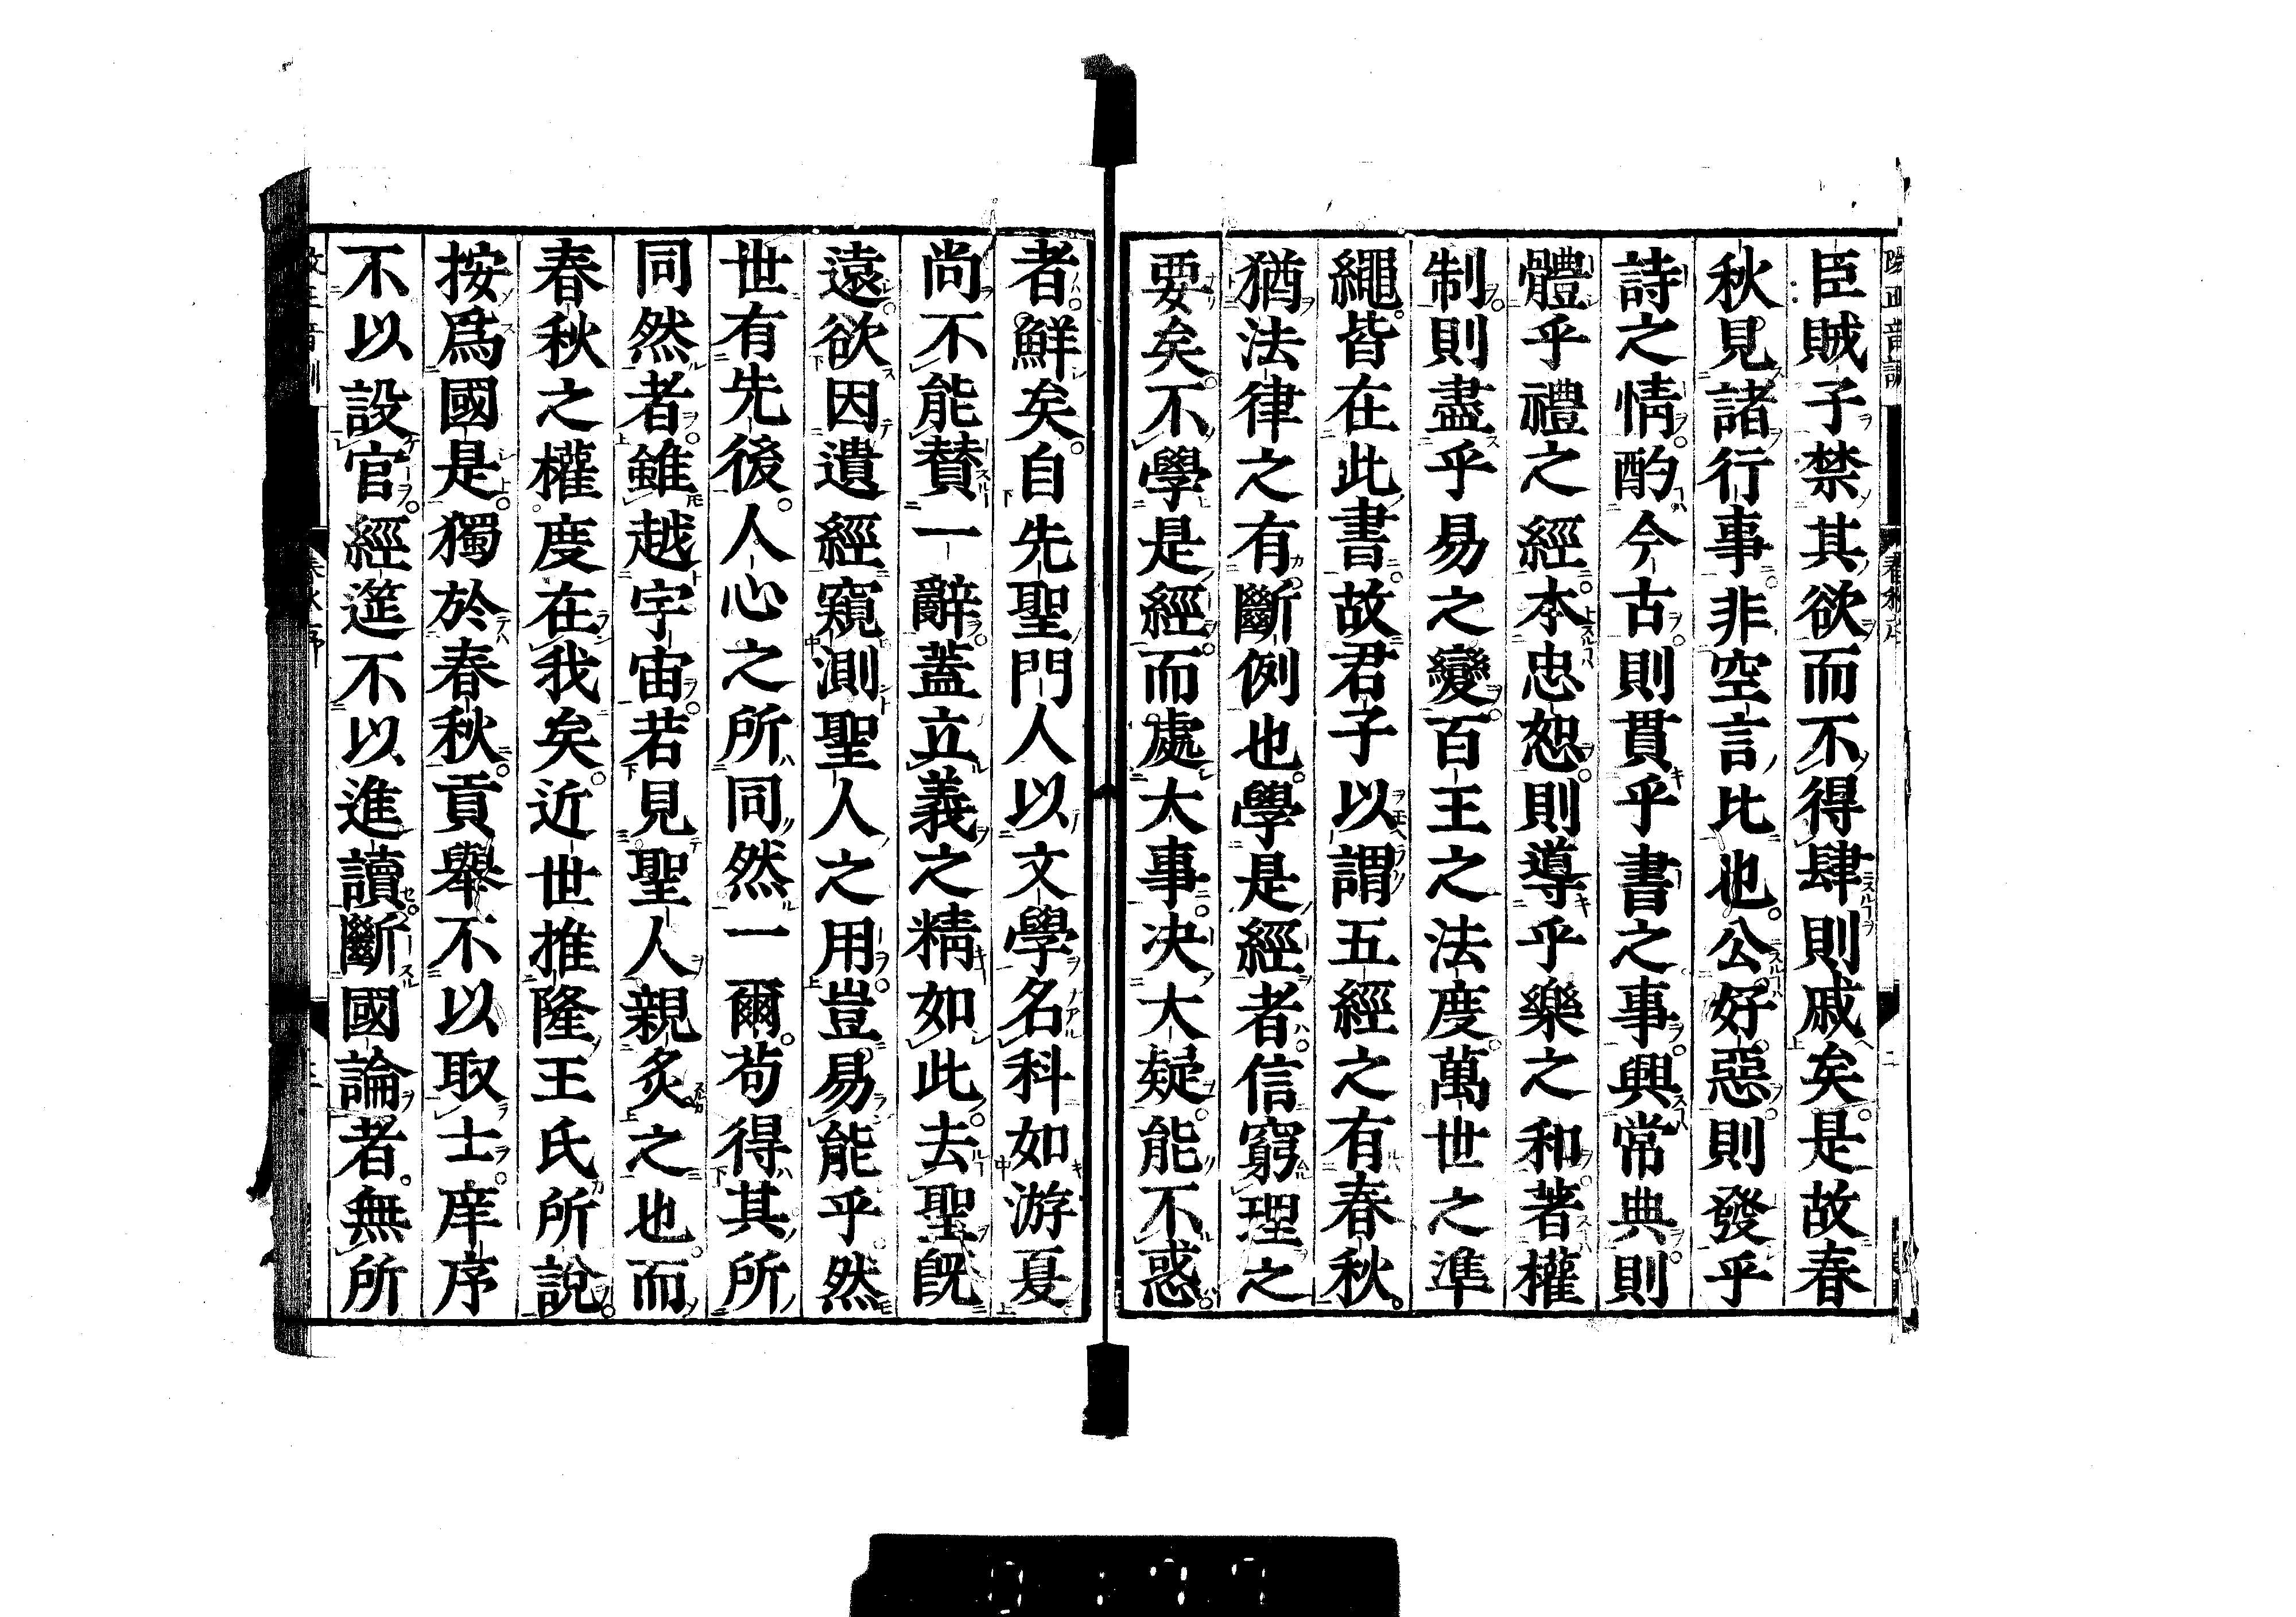 臣賊子禁其欲而不得肆則戚矣是故春
秋見諸行事非空言比也公好惡則發乎
詩之情酌今古則貫乎書之事興常典則
體乎禮之經本忠恕則導乎樂之和著權
制則盡乎易之變百王之法度萬世之準
繩皆在此書故君子以謂五經之有春秋
猶法律之有斷例也學是經者信窮理之
要矣不學是經而處大事决大疑能不惑
者鮮矣自先聖門人以文學名科如游夏
尚不能贊一辭蓋立義之精如此去聖旣
遠欲因遺經窺測聖人之用豈易能乎然
世有先後人心之所同然一爾苟得其所
同然者雖越宇宙若見聖人親炙之也而
春秋之權度在我矣近世推隆王氏所說
按爲國是獨於春秋貢舉不以取士庠序
不以設官經筵不以進讀斷國論者無所